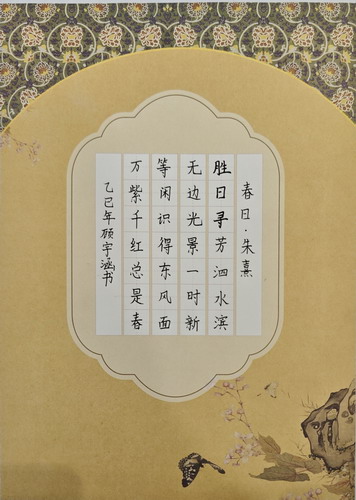 春日·朱熹
胜日寻芳泗水滨
无边光景一时新
等闲识得东风面
万紫千红总是春
乙巳年顾宇涵书